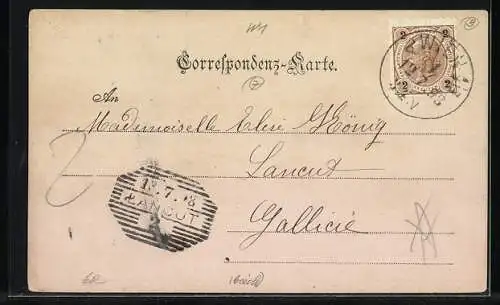 Correspondenz-Karte.
2 2
2 2
WIEN
An
Mademoiselle Elsie König
Lancut
Gallicie
13.7.98
ŁAŃCUT